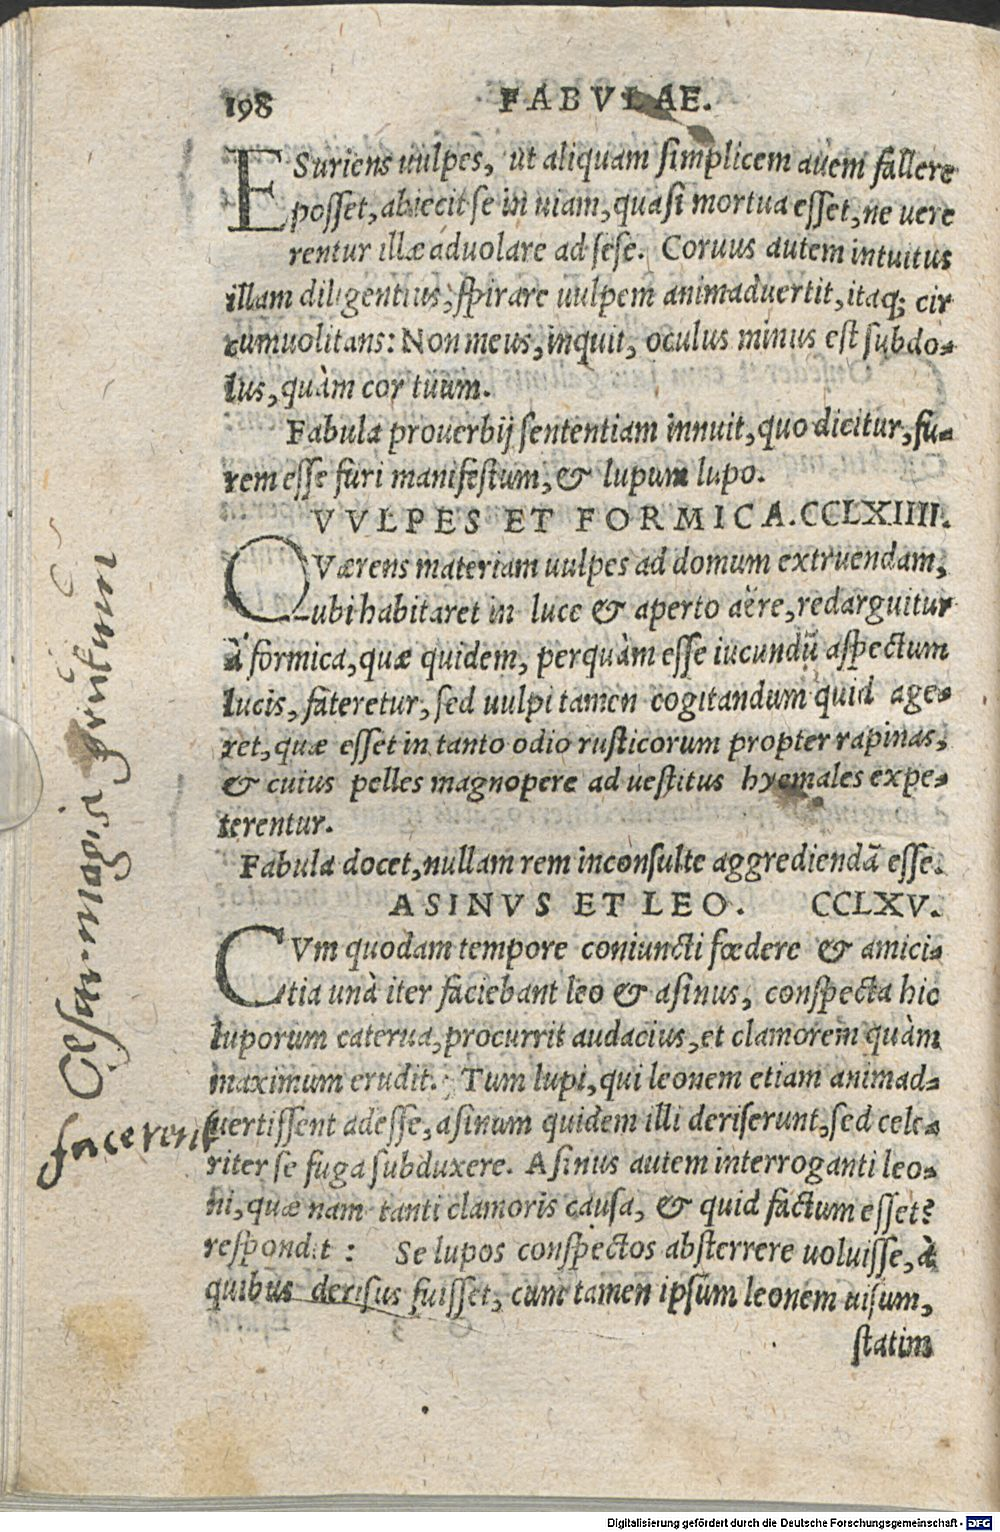 198 FABVLAE.
ESuriens uulpes, ut aliquam simplicem auem fallere
posset, abiecit se in uiam, quasi mortua esset, ne uere
rentur illæ aduolare ad sese. Coruus autem intuitus
illam diligentius, spirare uulpem animaduertit, itaq; cir
cumuolitans: Non meus, inquit, oculus minus est subdo-
lus, quàm cor tuum.
Fabula prouerbij sententiam innuit, quo dicitur, fu-
rem esse furi manifestum, & lupum lupo.
VVLPES ET FORMICA. CCLXIIII.
QVærens materiam uulpes ad domum extruendam,
ubi habitaret in luce & aperto aëre, redarguitur
à formica, quæ quidem, perquàm esse iucundũ aspectum
lucis, fateretur, sed uulpi tamen cogitandum quid age-
ret, quæ esset in tanto odio rusticorum propter rapinas,
& cuius pelles magnopere ad uestitus hyemales expe-
terentur.
Fabula docet, nullam rem inconsulte aggrediendã esse.
ASINVS ET LEO. CCLXV.
CVm quodam tempore coniuncti fœdere & amici-
tia unà iter faciebant leo & asinus, conspecta hic
luporum caterua, procurrit audacius, et clamorem quàm
maximum erudit. Tum lupi, qui leonem etiam animad-
uertissent adesse, asinum quidem illi deriserunt, sed cele-
riter se fuga subduxere. Asinus autem interroganti leo-
ni, quæ nam tanti clamoris causa, & quid factum esset?
respondit: Se lupos conspectos absterrere uoluisse, à
quibus derisus fuisset, cum tamen ipsum leonem uisum,
statim
magis
facerent